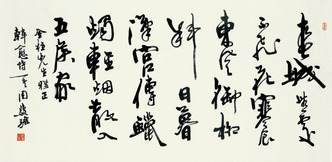 春城無處
不飛花寒食
東風御柳
斜日暮
漢宮傳蠟
燭輕烟散入
五侯家
先生雅正